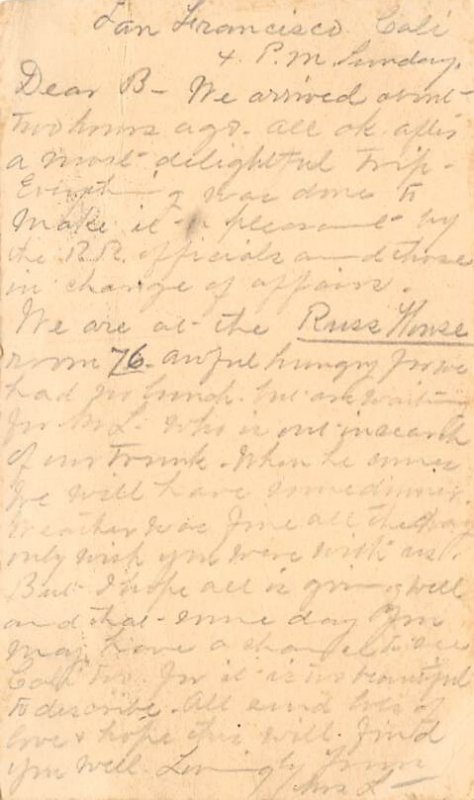 San Francisco Cali
4 P.M. Sunday.
Dear B- We arrived about
two hours ago. all ok after
a most delightful trip-
Everything was done to
make it a pleasant by
the R.R. officials and those
in charge of affairs.
We are at the Russ House
room 76. awful hungry for we
had no lunch. We are waiting
for M L- who is out in search
of our trunk. When he comes
we will have some dinner
Weather was fine all the way
only wish you were with us.
But I hope all is going well
and that some day you
may have a chance to see
Cali too. for it is too beautiful
to describe. All send lots of
love & hope this will find
you well. Lovingly Yours
Mrs L-